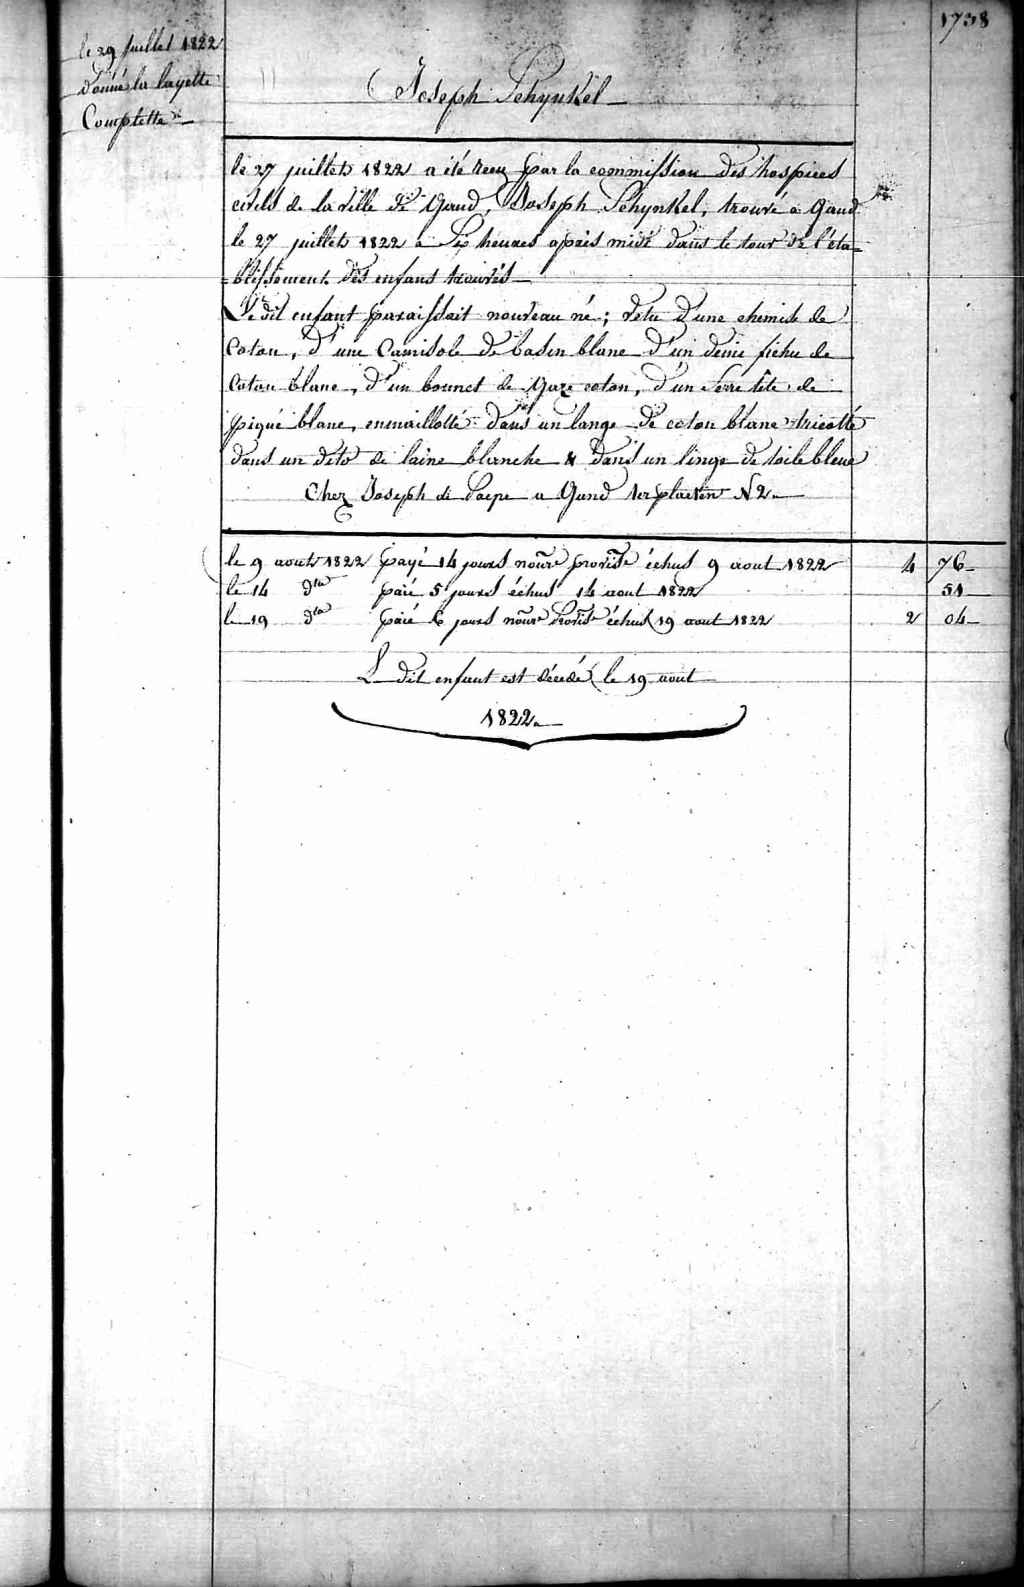 1738
le 29 juillet 1822
donné la layette
Complette
Joseph Schynkel
le 27 juillet 1822 a été recu par la commission des hospices
civils de la ville de Gand, Joseph Schynkel, trouvé a Gand
le 27 juillet 1822 a Six heures après midi dans le tour de l'éta=
=blissement des enfans trouvés
Le dit enfant paraissait nouveau né; vetu d'une chemise de
Coton, d'une Camisole de basin blanc d'un demi fichu de
Coton blanc, d'un bonnet de Gaze coton, d'un Serre tête de
piqué blanc, emmaillotté dans un lange de coton blanc tricotté
dans un dito de laine blanche & dans un linge de toile bleue
Chez Joseph de Paepe a Gand N 2
le 9 aout 1822 payé 14 jours nourre provise échus 9 aout 1822 4 76
le 14 dto paié 5 jours échus 14 aout 1822 51
le 19 dto paié 6 jours nourre Provise échus 19 aout 1822 2 04
L dit enfant est décédé le 19 aout
1822